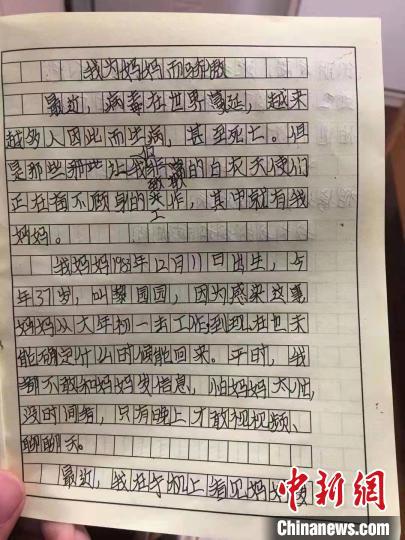 我为妈妈而骄傲
最近，病毒在世界蔓延，越来
越多人因此而生病，甚至死亡。但
是那些让我们敬的白衣天使们
正在奋不顾身的工作，其中就有我
妈妈。
我妈妈1983年12月11日出生，今
年37岁，叫黎园园，因为感染这事
妈妈从大年初一去工作，到现在也未
能确定什么时候能回来。平时，我
都不敢和妈妈发信息，怕妈妈太忙，
没时间看，只有晚上才敢视视频、
聊聊天。
最近，我在手机上看见妈妈要
中新网
Chinanews.com